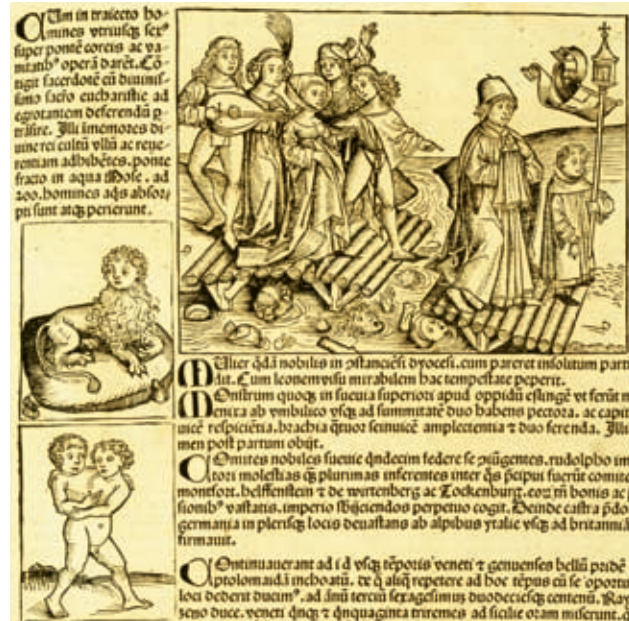 CUm in traiecto ho-
mines vtriusqʒ sexꝰ
super pontē coreis ac va-
nitatibꝰ operā darēt. Cō-
tigit sacerdotē cū diuinis-
simo sacro eucharistie ad
egrotantem deferendū ꝑ-
trāsire. Illi īmemores di-
uine rei cultū vllū ac reue-
rentiam adhibētes. ponte
fracto in aqua Mose. ad
200. homines aq̄s absor-
pti sunt atqʒ perierunt.
MUlier q̄dā nobilis in ꝯstanciēsi dyocesi. cum pareret insolitum part
dit. Cum leonem visu mirabilem hac tempestate peperit.
MOnstrum quoqʒ in sueuia superiori apud oppidū eslingē vt ferūt n
menira ab vmbilico vsqʒ ad summitatē duo habens pectora. ac capit
uicē respiciētia. brachia q̄tuor seinuicē amplectentia ⁊ duo ferenda. Illi
men post partum obijt.
COmites nobiles sueuie q̄ndecim federe se ꝯiūgentes. rudolpho im
tori molestias q̄ʒ plurimas inferentes inter q̄s p̄cipui fuerūt comite
montfort. helffenstein ⁊ de wirtenberg ac Tockenburg. eoꝝ m̄ bonis ac p
sionibꝰ vastatis. imperio sb̄ijciendos perpetuo cogit. Deinde castra p̄do
germania in plerisqʒ locis deuastans ab alpibus ytalie vsqʒ ad britanniā
firmauit.
COntinuauerant ad i d vsqʒ tēporis veneti ⁊ genuenses bellū pridē
ptolomaidā inchoatū. de q̄ aliq̄ repetere ad hoc tēpus cū se oportu
loci dederit ducimꝰ. ad ānū terciū sexagesimū duodeciesqʒ centenū. Ray
zeno duce. veneti q̄nqʒ ⁊ q̄nquaginta triremes ad sicilie oram miserunt. q